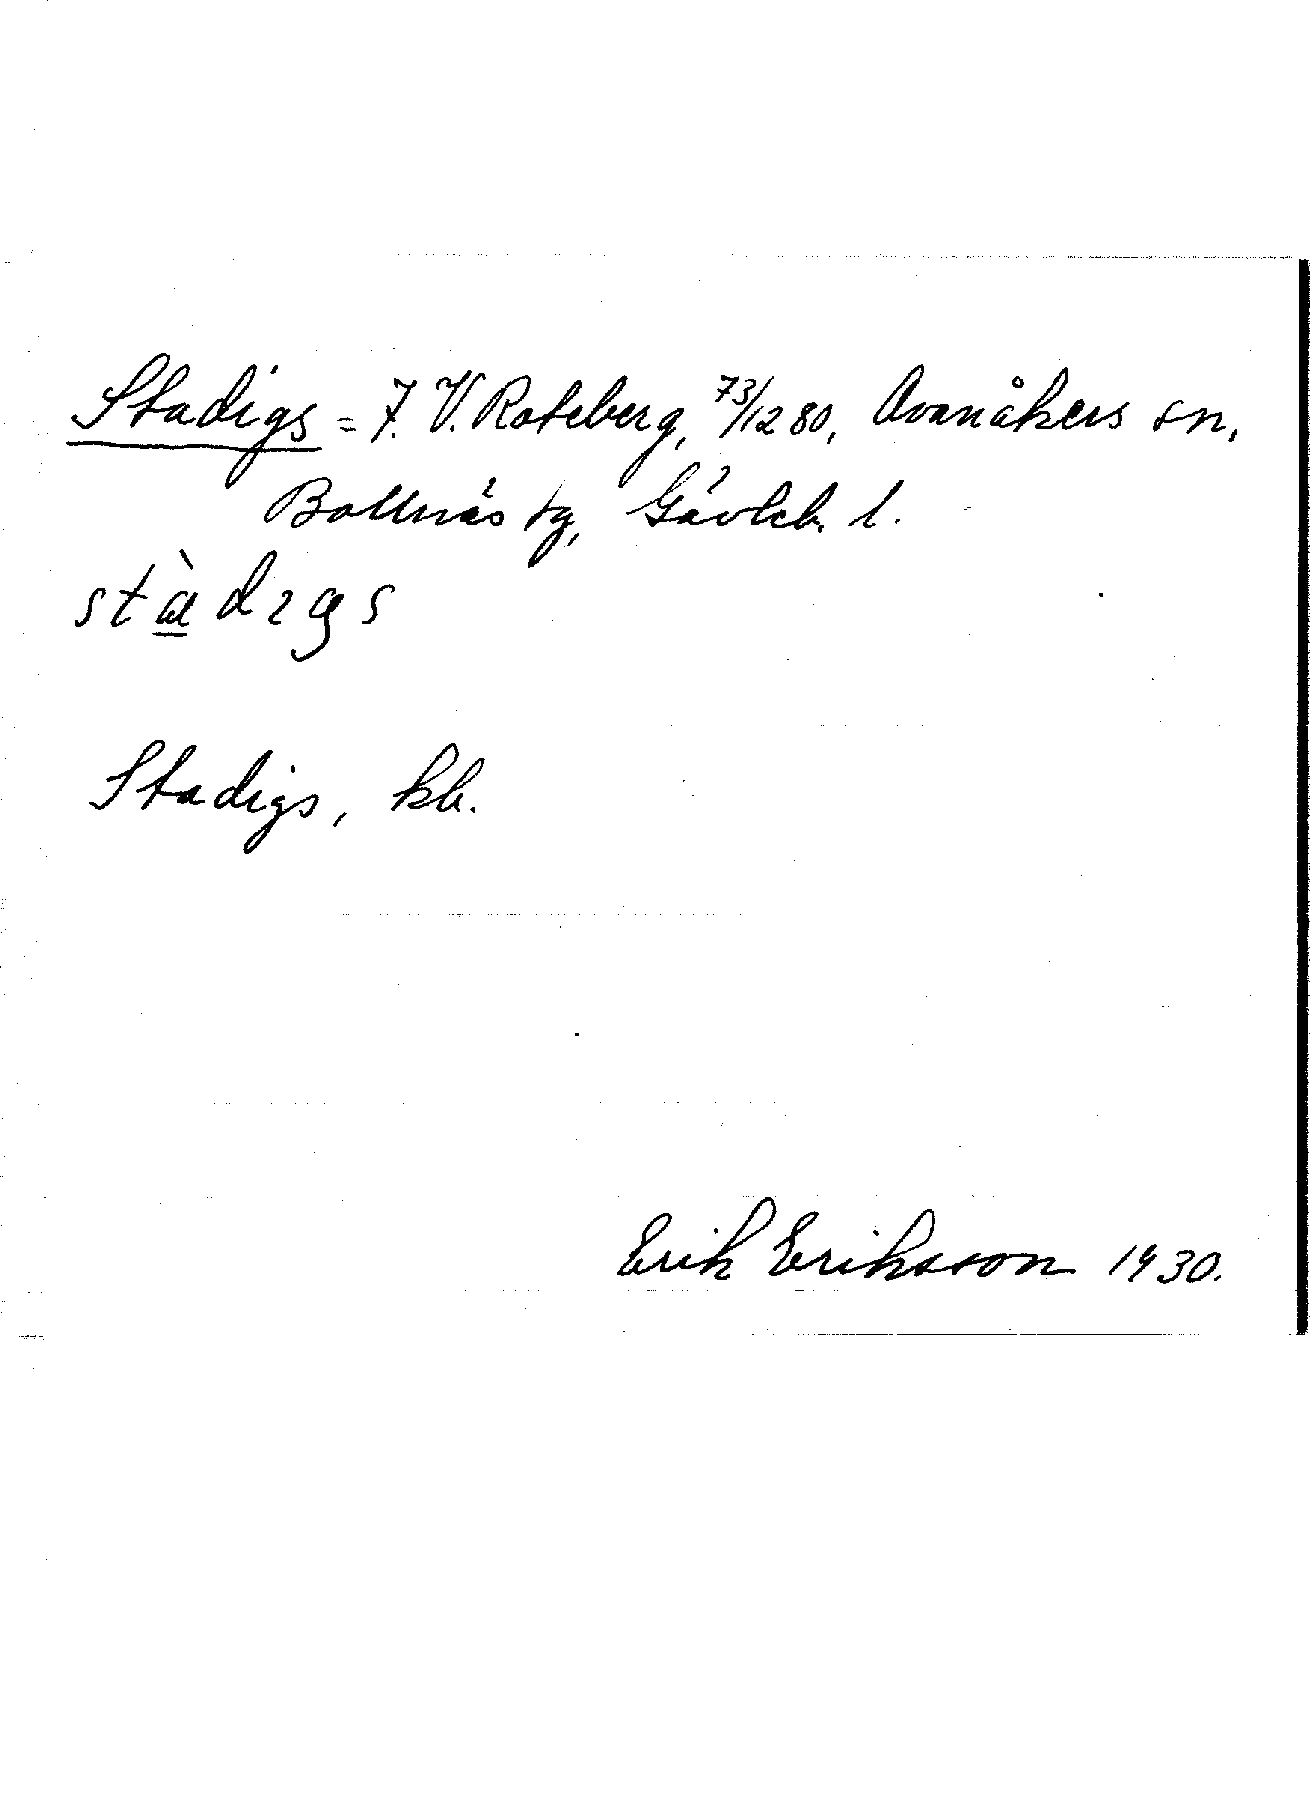 Stadigs = F. V. Roteberg, 73/1280, Ovanåkers sn,
Bollnäs tg, Gävleb. l.
stàdıgs
Stadigs, kb.
Erik Eriksson 1930.